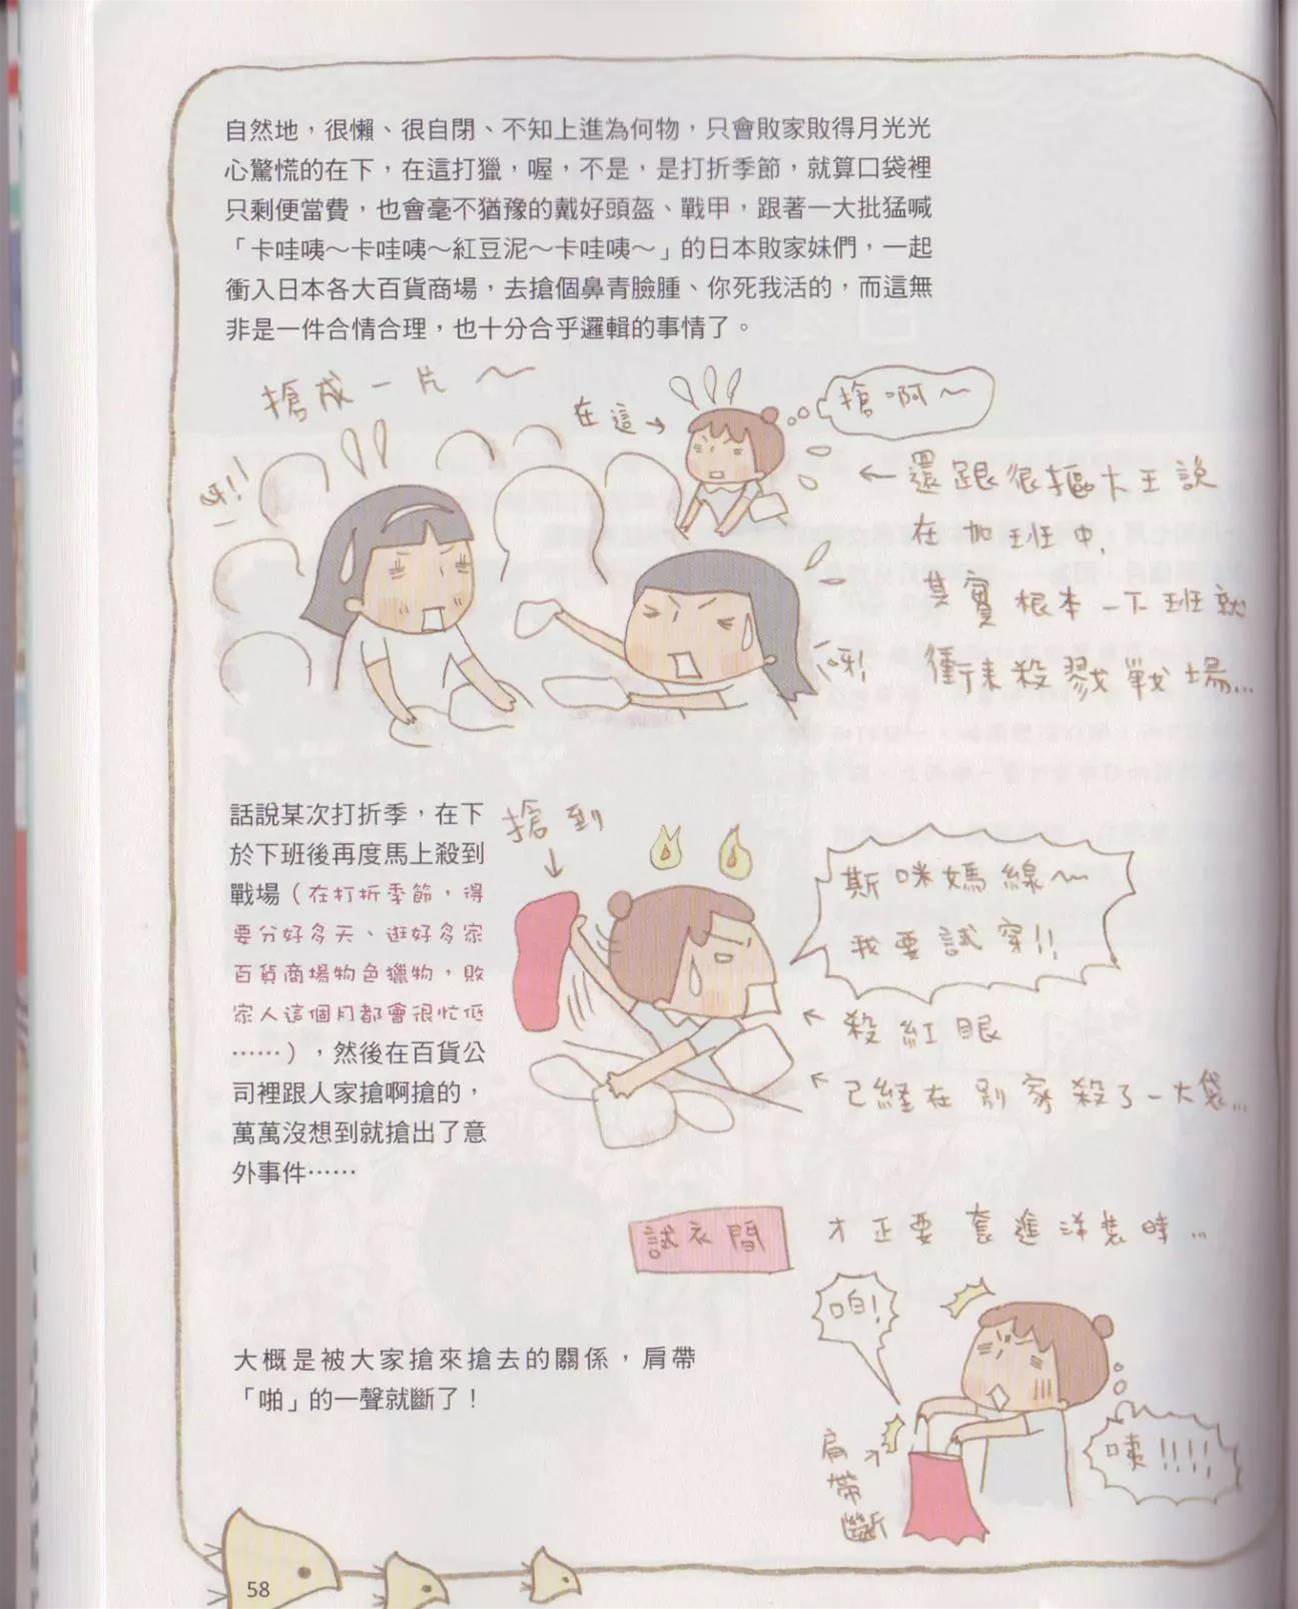 自然地，很懶、很自閉、不知上進為何物，只會敗家敗得月光光
心驚慌的在下，在這打獵，喔，不是，是打折季節，就算口袋裡
只剩便當費，也會毫不猶豫的戴好頭盔、戰甲，跟著一大批猛喊
「卡哇咦～卡哇咦～紅豆泥～卡哇咦～」的日本敗家妹們，一起
衝入日本各大百貨商場，去搶個鼻青臉腫、你死我活的，而這無
非是一件合情合理，也十分合乎邏輯的事情了。
搶成一片～
在這→
搶啊～
呀!!
←還跟很摳大王說
在加班中,
其實根本一下班就
衝來殺戮戰場...
呀!
話說某次打折季，在下
於下班後再度馬上殺到
戰場（在打折季節，得
要分好多天、逛好多家
百貨商場物色獵物，敗
家人這個月都會很忙低
……），然後在百貨公
司裡跟人家搶啊搶的，
萬萬沒想到就搶出了意
外事件……
搶到
↓
斯咪媽線～
我要試穿!!
←殺紅眼
←已経在別家殺了一大袋...
試衣間
才正要套進洋裝時...
啪!
大概是被大家搶來搶去的關係，肩帶
「啪」的一聲就斷了！
肩帶斷
咦!!!!
58